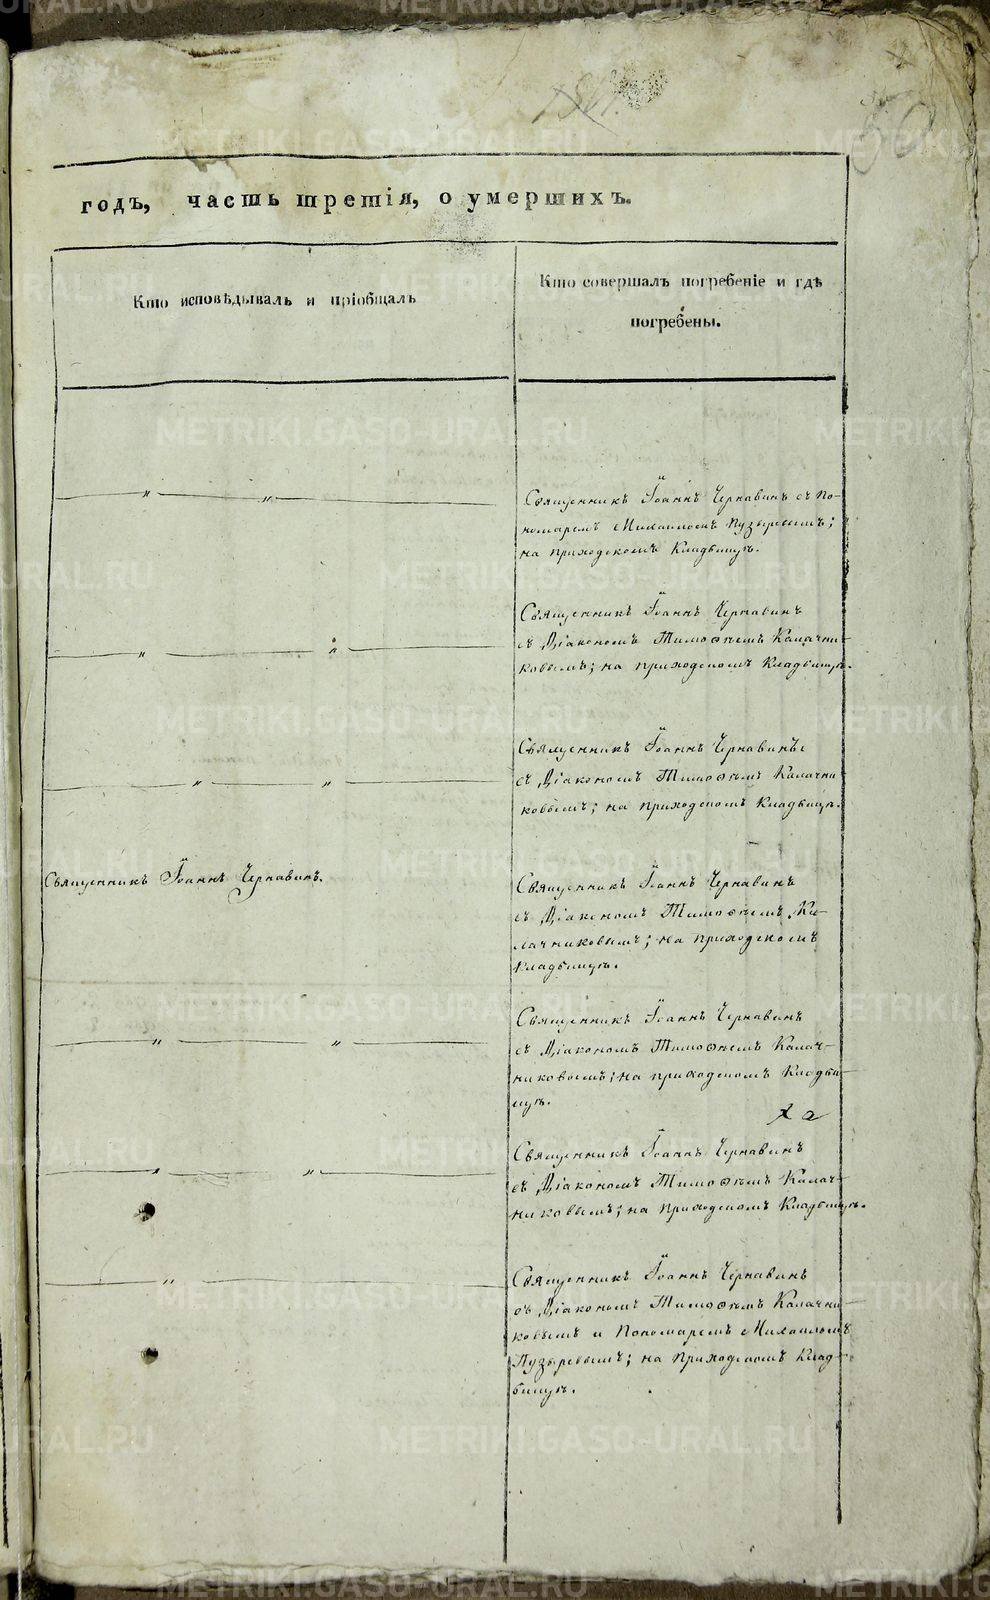 50
годъ, часть третія, о умершихъ.
Кто исповѣдывалъ и пріобщалъ
Кто совершалъ погребеніе и гдѣ
погребены.
Священникъ Іоаннъ Чернавинъ съ По-
номаремъ Михаиломъ Пузыревымъ;
на приходскомъ Кладбищѣ.
Священникъ Іоаннъ Чернавинъ
съ Діакономъ Тимоѳеемъ Калачни-
ковымъ; на приходскомъ Кладбищѣ.
Священникъ Іоаннъ Чернавинъ
съ Діакономъ Тимоѳеемъ Калачни-
ковымъ; на приходскомъ Кладбищѣ.
Священникъ Іоаннъ Чернавинъ.
Священникъ Іоаннъ Чернавинъ
съ Діакономъ Тимоѳеемъ Ка-
лачниковымъ; на приходскомъ
Кладбищѣ.
Священникъ Іоаннъ Чернавинъ
съ Діакономъ Тимоѳеемъ Калач-
никовымъ; на приходскомъ Кладби-
щѣ.
Священникъ Іоаннъ Чернавинъ
съ Діакономъ Тимоѳеемъ Калач-
никовымъ; на приходскомъ Кладбищѣ.
Священникъ Іоаннъ Чернавинъ
съ Діакономъ Тимоѳеемъ Калачни-
ковымъ и Пономаремъ Михаиломъ
Пузыревымъ; на приходскомъ Клад-
бищѣ.
METRIKI.GASO-URAL.RU